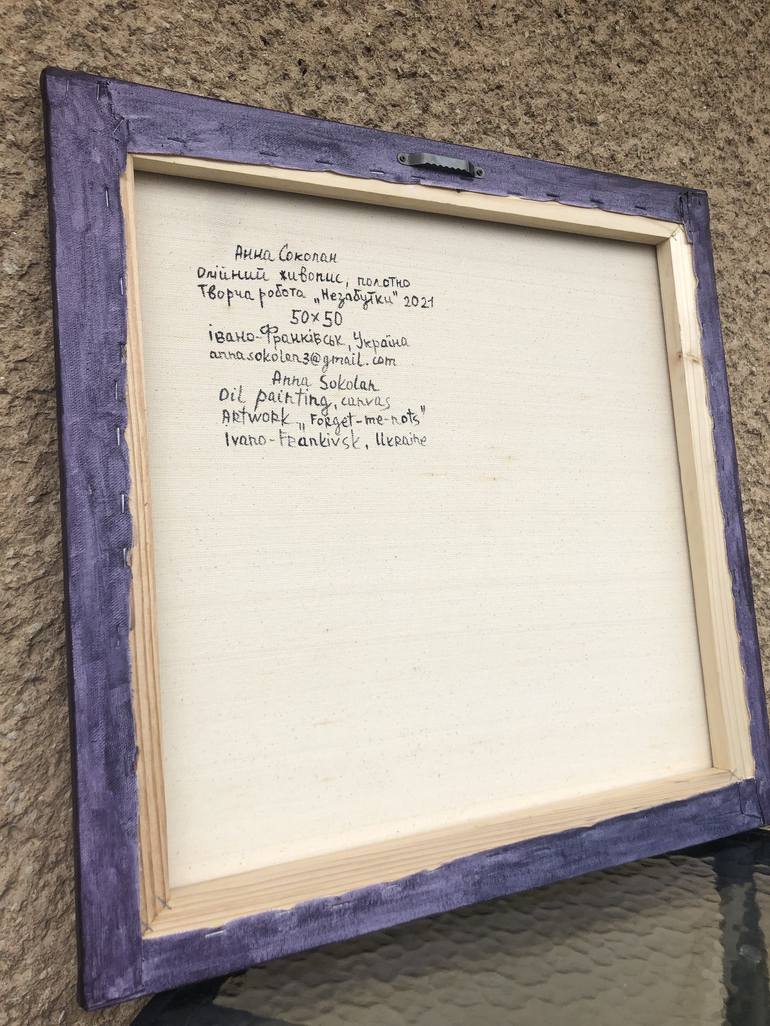 Анна Соколан
Олійний живопис, полотно
Творча робота „Незабутки" 2021
50×50
Івано-Франківськ, Україна
annasokolan3@gmail.com
Anna Sokolan
Oil painting, canvas
Artwork „Forget-me-nots"
Ivano-Frankivsk, Ukraine